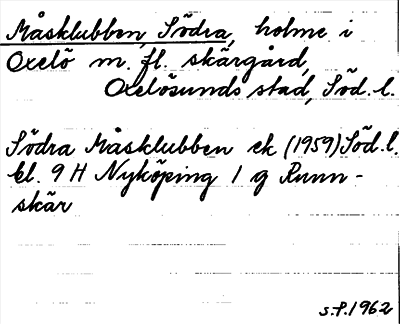 Måsklubben, Södra, holme i
Oxelö m. fl. skärgård,
Oxelösunds stad, Söd. l.
Södra Måsklubben ek (1959) Söd. l.
bl. 9 H Nyköping 1 g Runn-
skär
s.f. 1962